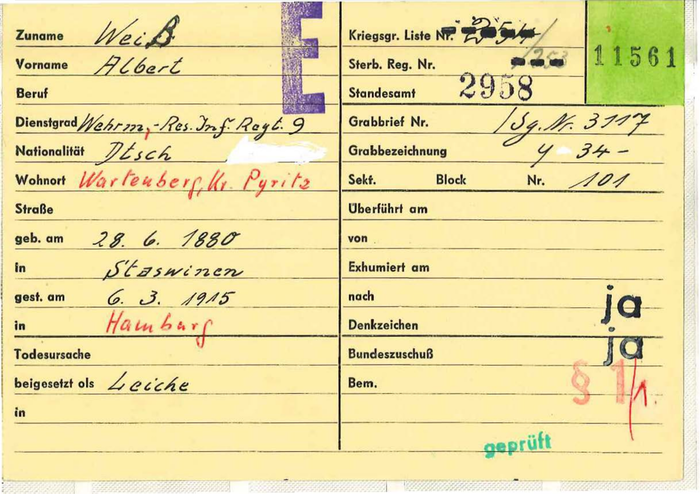 E
Zuname Weiß
Vorname Albert
Beruf
Dienstgrad Wehrm,-Res. Inf. Regt. 9
Nationalität Dtsch
Wohnort Wartenberg, Kr. Pyritz
Straße
geb. am 28. 6. 1880
in Staswinen
gest. am 6. 3. 1915
in Hamburg
Todesursache
beigesetzt als Leiche
in
Kriegsgr. Liste Nr.
Sterb. Reg. Nr.
2958
Standesamt
11561
Grabbrief Nr. Sg. Nr. 3117
Grabbezeichnung Y 34-
Sekt. Block Nr. 101
Überführt am
von
Exhumiert am
nach
Denkzeichen ja
Bundeszuschuß ja
Bem. § 1
geprüft